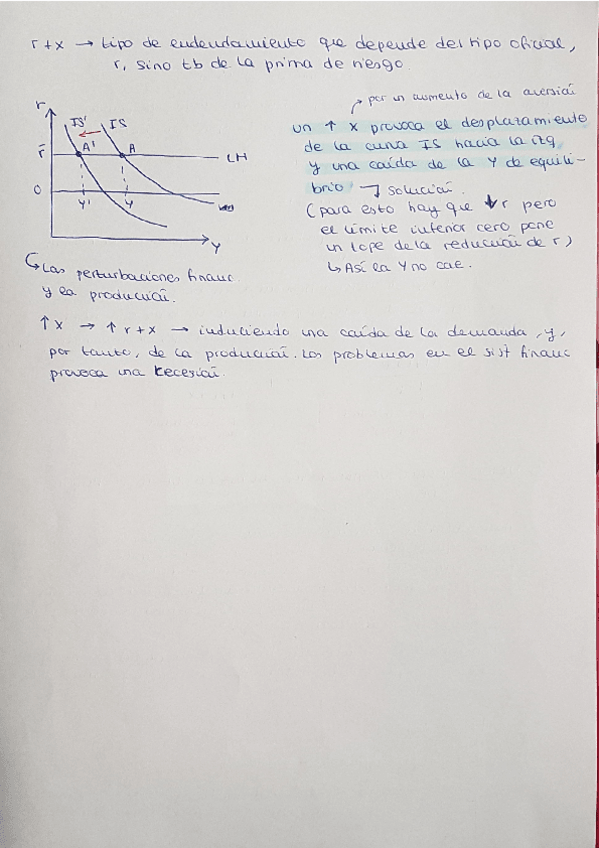 r + x → tipo de endeudamiento que depende del tipo oficial,
r, sino tb de la prima de riesgo.
→ por un aumento de la aversión
un ↑ x provoca el desplazamiento
de la curva IS hacia la izq
y una caída de la Y de equili-
brio. → solución.
(para esto hay que ↓ r pero
el límite inferior cero pone
un tope de la reducción de r)
↳ Así la Y no cae.
r
IS' IS
r̄ A' A LM
0 Y' Y
Y
↳ Las perturbaciones financ.
y la producción.
↑ x → ↑ r + x → induciendo una caída de la demanda, y,
por tanto, de la producción. Los problemas en el sist financ
provoca una recesión.